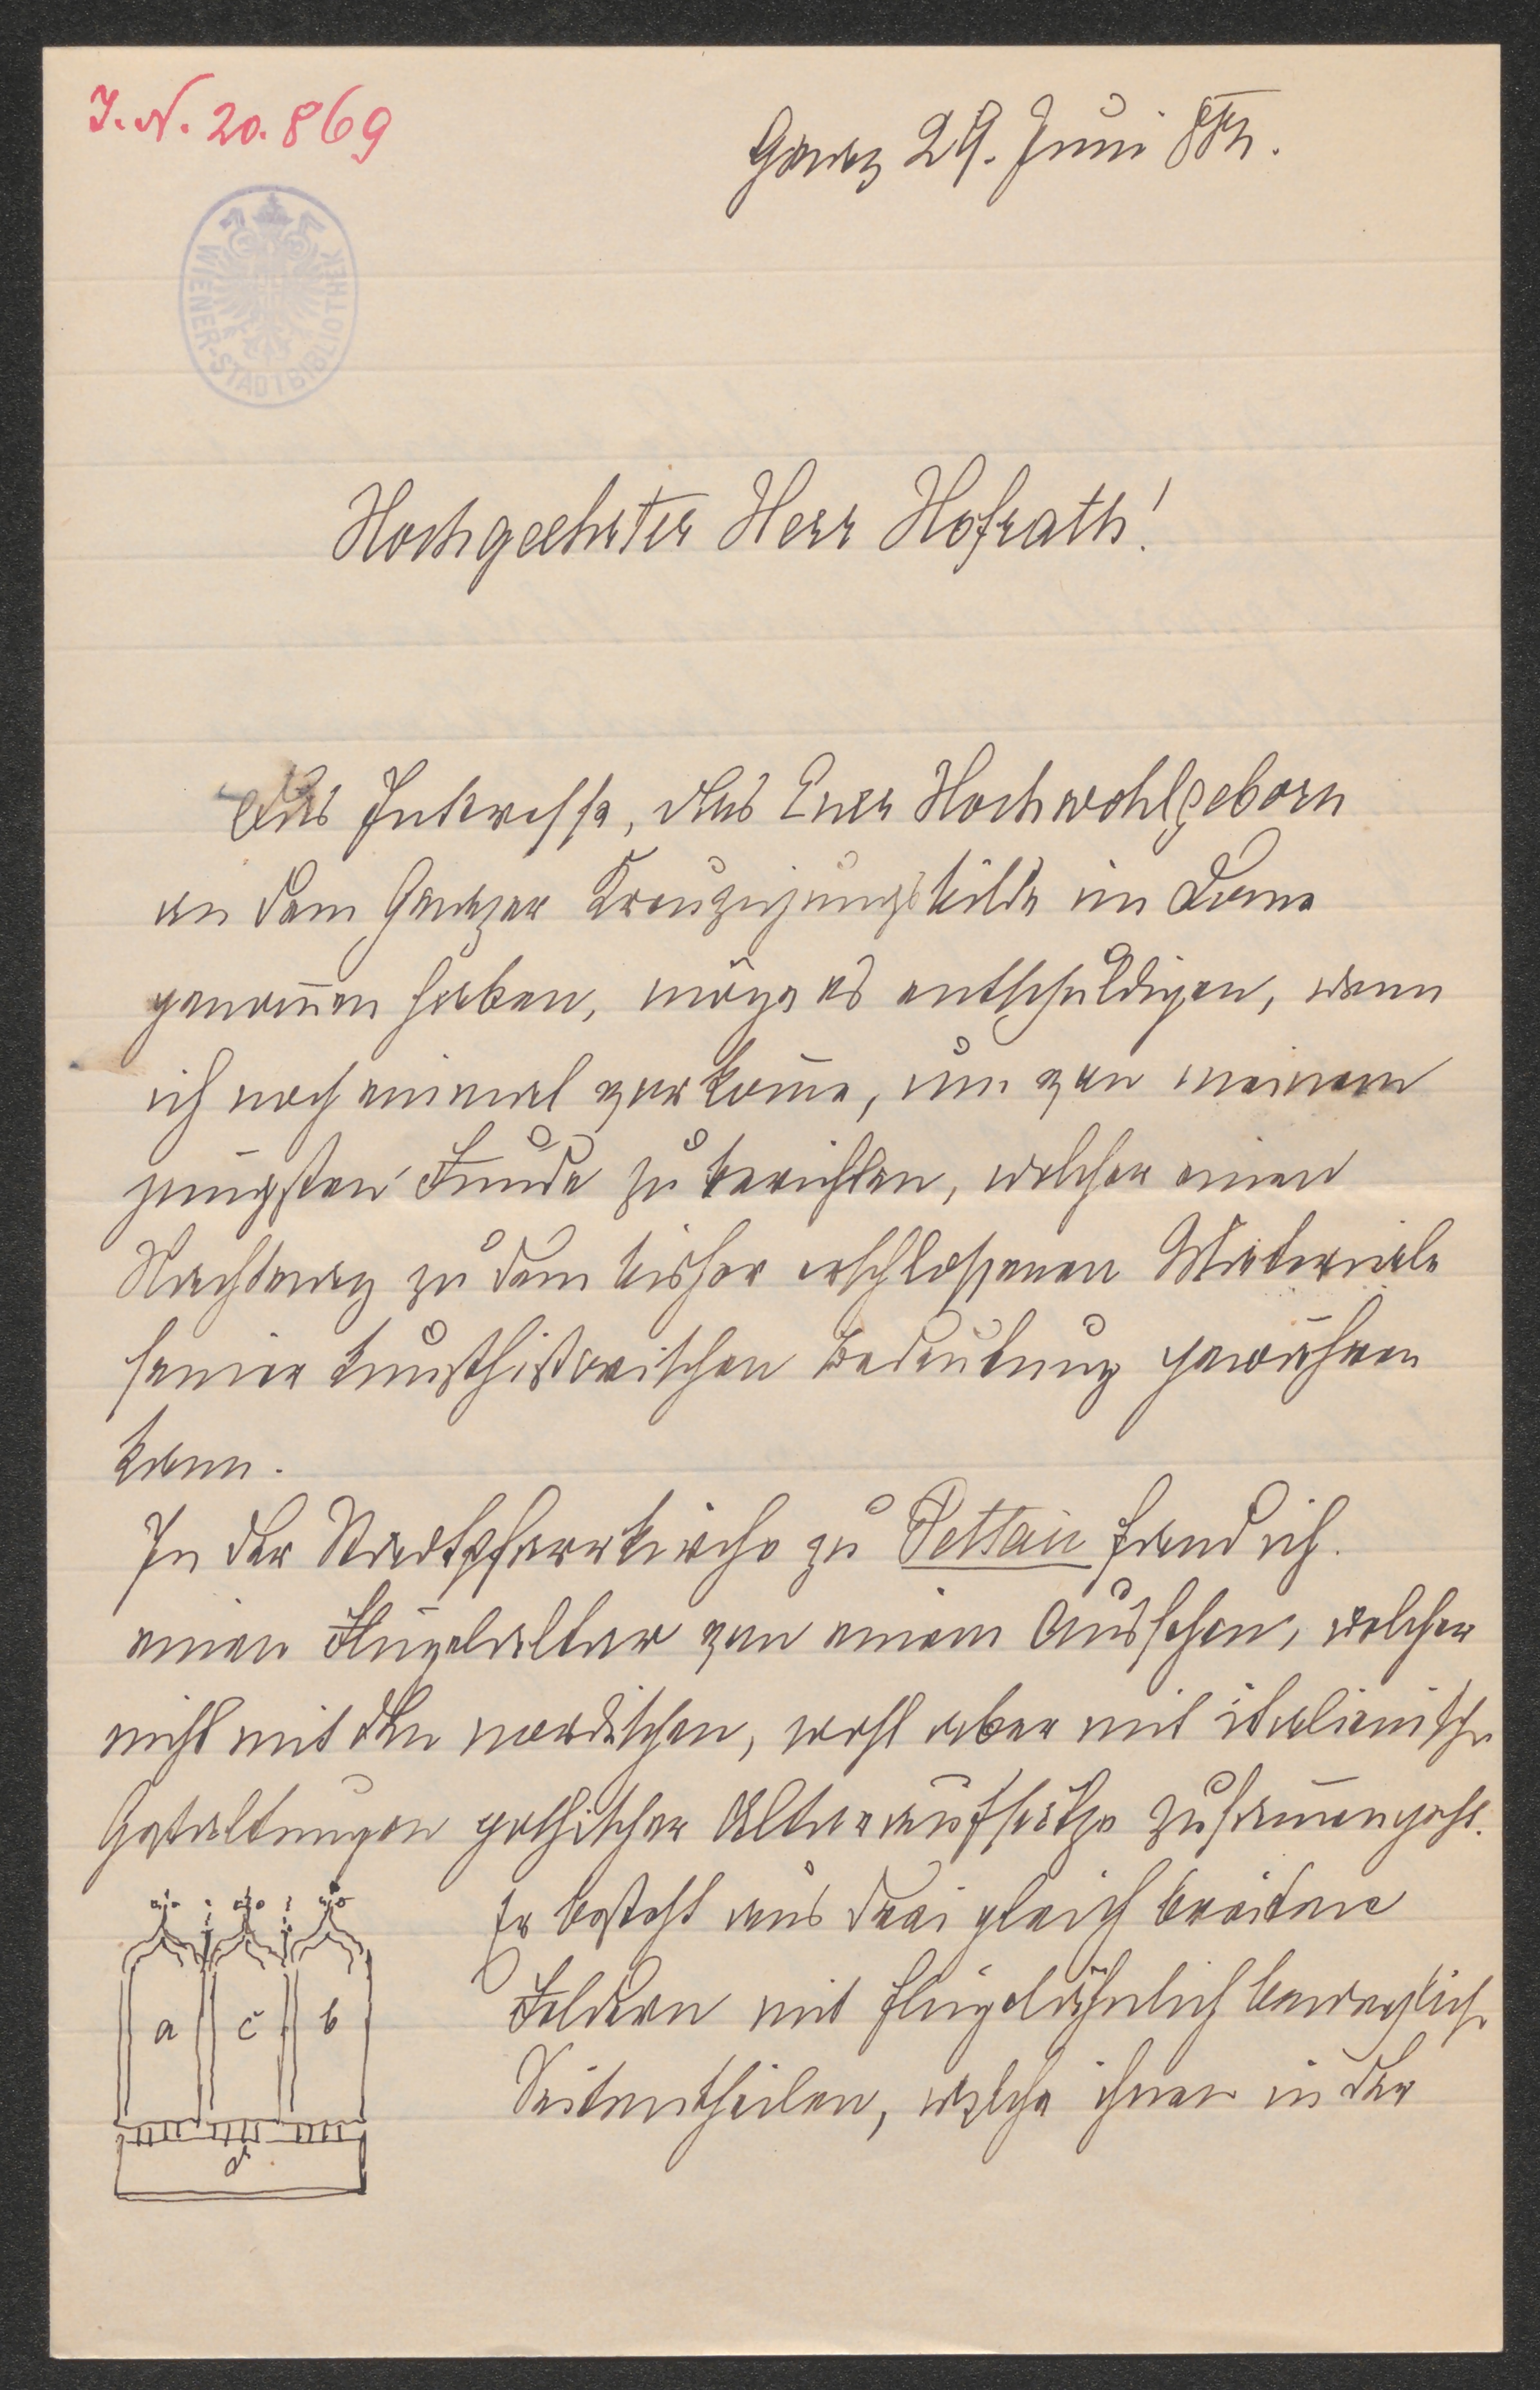 I. N. 20.869
Graz 29. Juni 882.
WIENER-STADTBIBLIOTHEK
Hochgeehrter Herr Hofrath!
Das Interesse, das Euer Hochwohlgeborn
an dem Grazer Kreuzigungsbilde im Dome
genom̅en haben, möge es entschuldigen, wenn
ich noch einmal vorkom̅e, um von meinem
jüngsten Funde zu berichten, welcher einen
Nachtrag zu dem bisher erschlossenen Materiale
seiner kunsthistorischen Bedeutung gewähren
kann.
In der Stadtpfarrkirche zu Pettau fand ich
einen Flügelaltar von einem Aussehen, welches
nicht mit den nordischen, wohl aber mit italienische
Gestaltungen gothischer Altaraufsätze zusam̅engeht.
Er besteht aus drei gleich breiten
Feldern mit flügelähnlich beweglich
Seitentheilen, welche ihnen in der
a c b
d